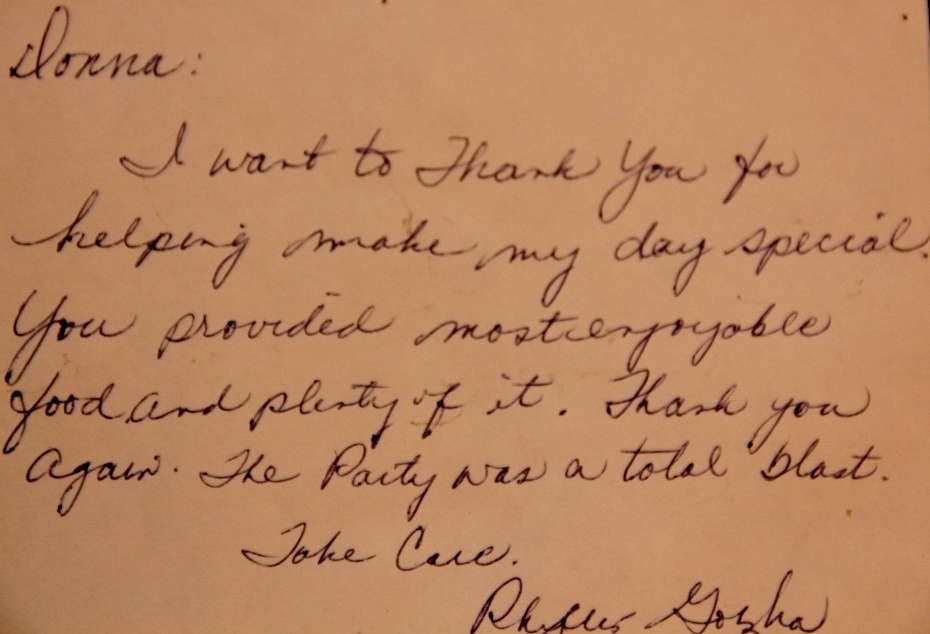 Donna:
I want to Thank You for
helping make my day special.
You provided most enjoyable
food and plenty of it. Thank you
Again. The Party was a total blast.
Take Care.
Phyllis